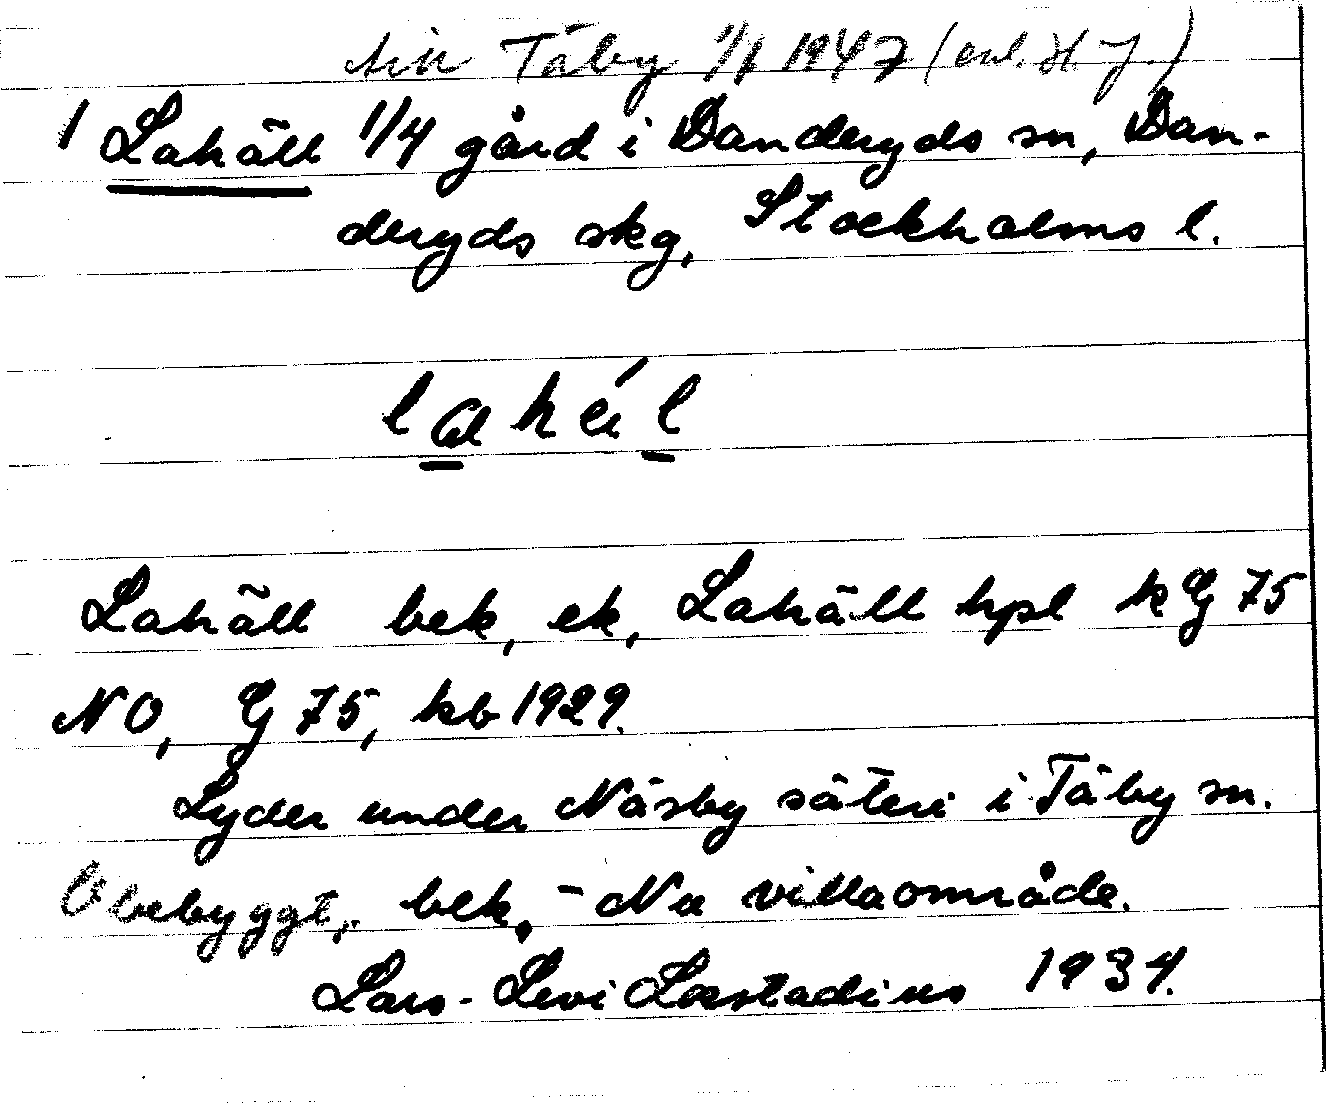 Täby 1/1 1947 (enl. H. J.)
1 Lahäll 1/4 gård i Danderyds sn, Dan-
deryds skg, Stockholms l.
lahä́l
Lahäll bek, ek, Lahäll hpl k G 75
NO, G 75, kb 1929.
Lyder under Näsby säteri i Täby sn.
Obebyggt, bek. - Nu villaområde.
Lars-Levi Læstadius 1934.